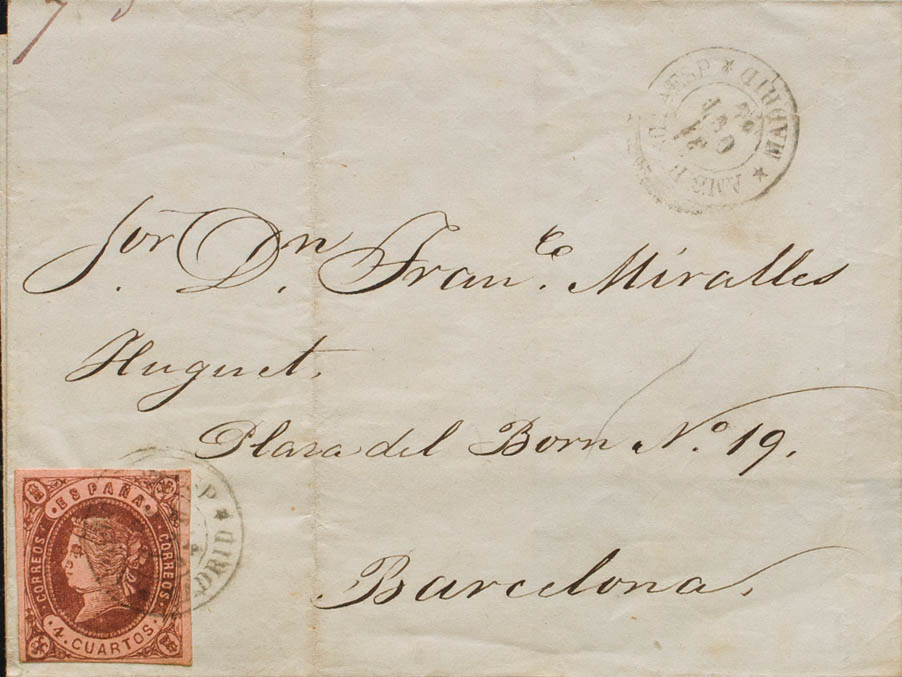 Sor. Dn. Franco. Miralles
Huguet.
Plaza del Born No. 19.
Barcelona.
ESPAÑA
CORREOS
CORREOS
4. CUARTOS.
MADRID